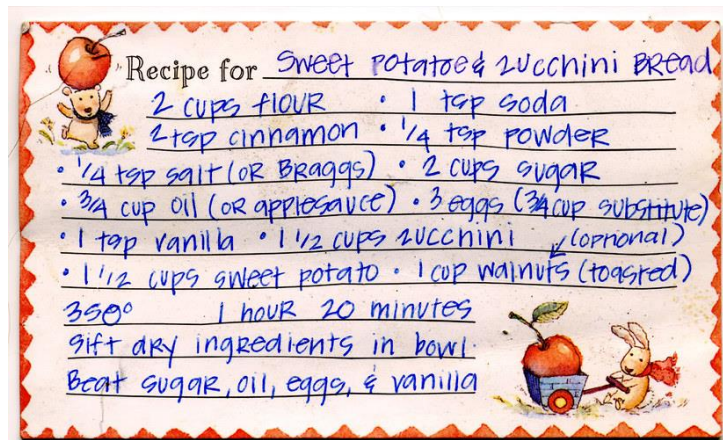 Recipe for Sweet Potatoe & Zucchini Bread
2 cups flour · 1 tsp soda
2 tsp cinnamon · 1/4 tsp powder
· 1/4 tsp salt (or Braggs) · 2 cups sugar
· 3/4 cup oil (or applesauce) · 3 eggs (3/4 cup substitute)
· 1 tsp vanilla · 1 1/2 cups zucchini (optional)
· 1 1/2 cups sweet potato · 1 cup walnuts (toasted)
350° 1 hour 20 minutes
Sift dry ingredients in bowl
Beat sugar, oil, eggs, & vanilla